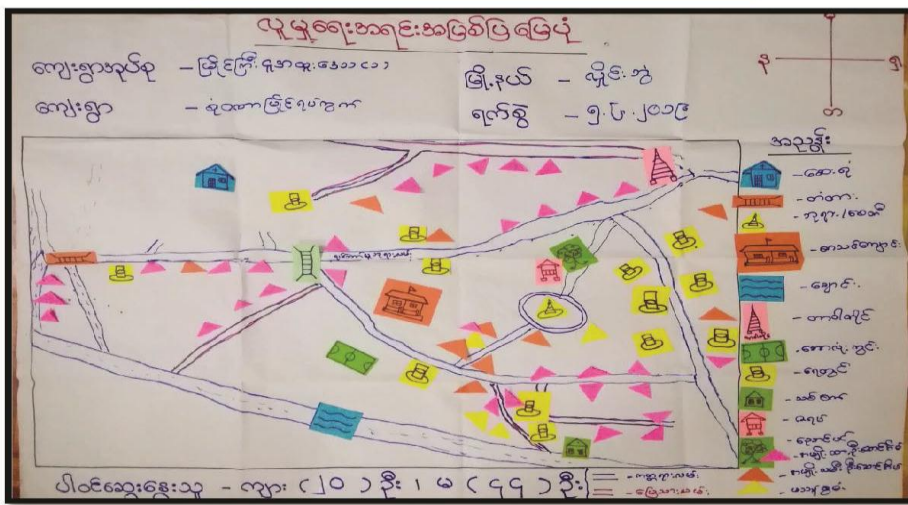 လူမှုရေးအရင်းအမြစ်ပြမြေပုံ
ကျေးရွာအုပ်စု -
မြို့နယ် - လှိုင်းဘွဲ
ကျေးရွာ -
ရက်စွဲ - ၅.၆.၂၀၁၉
န
တ
အညွှန်း
- ဆေးရုံ
- တံတား
- ဘုရား/စေတီ
- စာသင်ကျောင်း
- ချောင်း
- တာဝါတိုင်
- ဘောလုံးကွင်း
- ရေတွင်း
- ဇရပ်
- အမျိုးသားဦးဆောင်အိမ်
- အမျိုးသမီးဦးဆောင်အိမ်
- မသန်စွမ်း
ပါဝင်ဆွေးနွေးသူ - ကျား (၂၀) ဦး၊ မ (၄၄) ဦး
- ကတ္တရာလမ်း
- မြေသားလမ်း